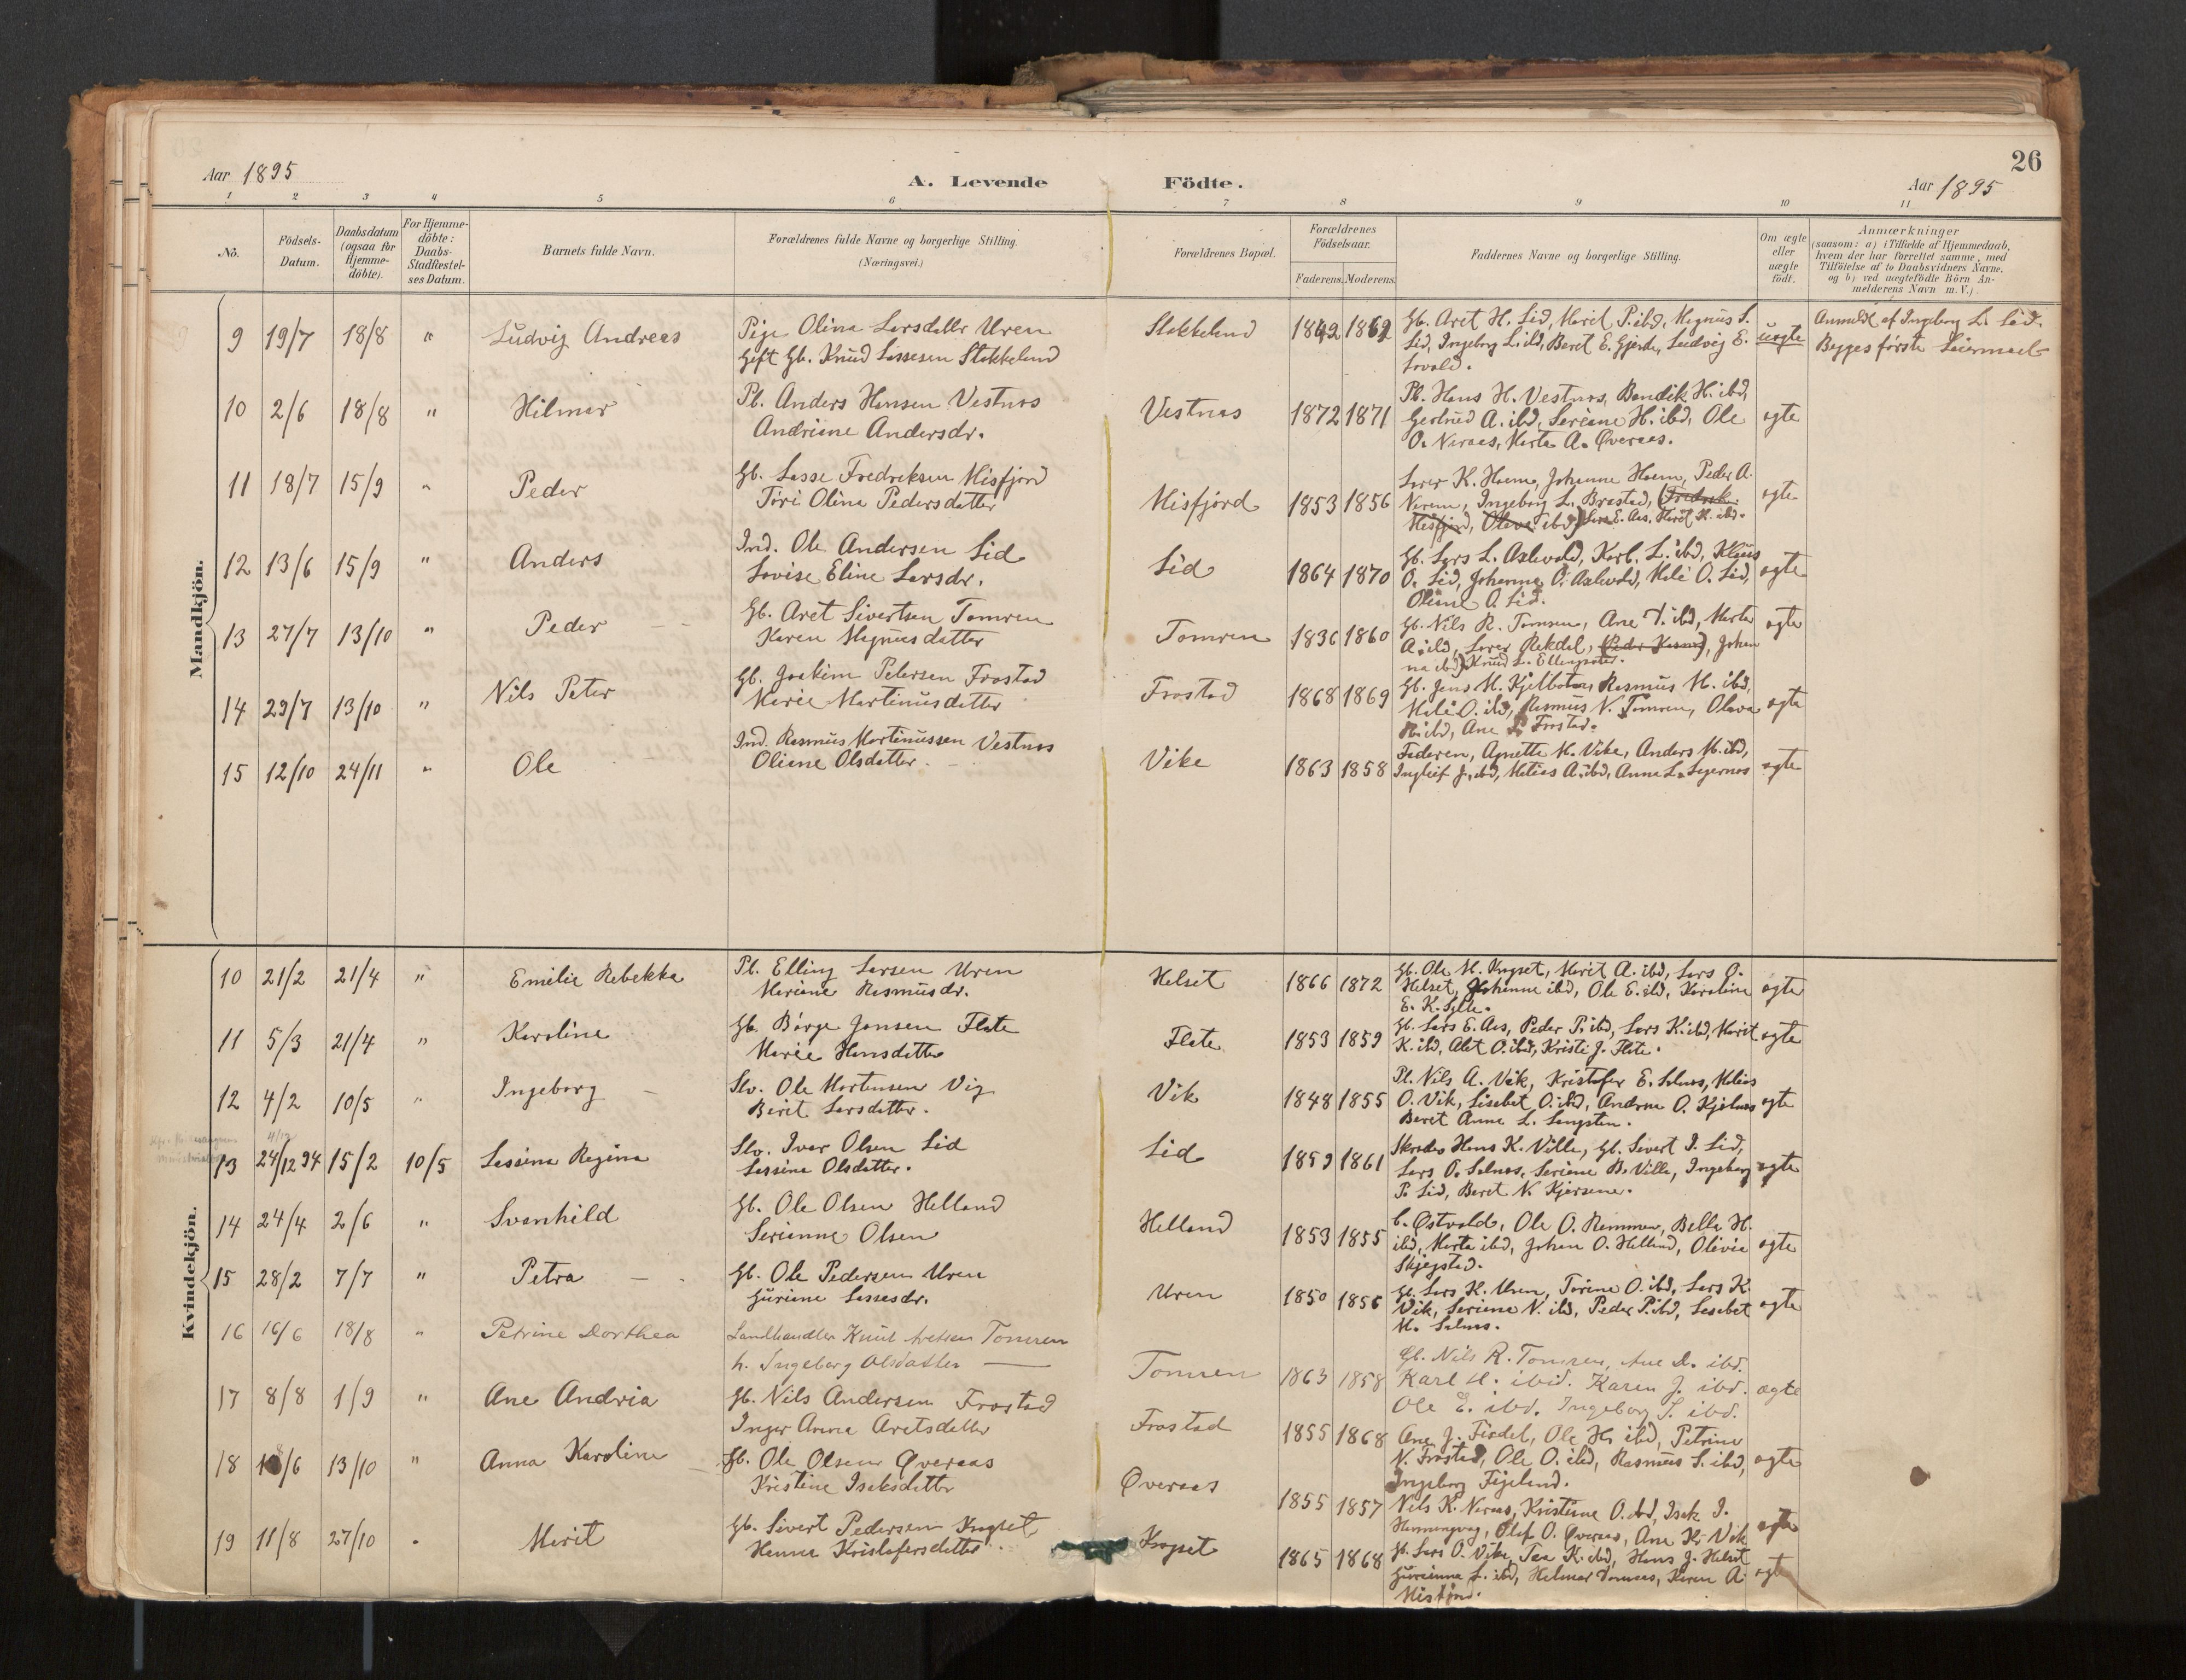 26
Aar 1895
A. Levende Födte.
Aar 1895
1 2 3 4 5 6 7 8 9 10 11
No.
Födsels-Datum.
Daabsdatum (ogsaa for Hjemme-döbte).
For Hjemme-döbte: Daabs-Stadfæstel-ses Datum.
Barnets fulde Navn.
Forældrenes fulde Navne og borgerlige Stilling.
(Næringsvei.)
Forældrenes Bopæl.
Forældrenes Födselsaar.
Faderens. Moderens.
Faddernes Navne og borgerlige Stilling.
Om ægte eller uægte födt.
Anmærkninger
(saasom: a) i Tilfælde af Hjemmedaab,
hvem der har forrettet samme, med
Tilföielse af to Daabsvidners Navne,
og b) ved uægtefödte Börn An-
melderens Navn m. V.)
Mandkjön.
9 19/7 18/8 " Ludvig Andreas
Pige Olina Larsdatter Uren
Gift Gb. Knud Lassesen Stokkeland
Stokkeland 1842 1862
Gb. Aret H. Lid, Marit P. ibd, Magnus S.
Lid, Ingeborg L. ibd, Beret E. Gjerde, Ludvig E.
Lovold.
uægte
Anmeldt af Ingeborg L. Lid.
Begges förste Leiermaal
10 2/6 18/8 " Hilmar
Pl. Anders Hansen Vestnæs
Andriane Andersdr.
Vestnæs 1872 1871
Pl. Hans H. Vestnæs, Bendik H. ibd,
Gertrud A. ibd, Seriane H. ibd, Ole
O. Neraas, Marta A. Øveraas.
ægte
11 18/7 15/9 " Peder
Gb. Lasse Fredriksen Misfjord
Töri Olina Pedersdatter
Misfjord 1853 1856
Lærer K. Hoem, Johanne Hoem, Peder A.
Nerem, Ingeborg L. Brastad, (Fredrik
Misfjord, Olava ibd) Lars E. Aas, Marit K. ibd.
ægte
12 13/6 15/9 " Anders
Ind. Ole Andersen Lid
Lovise Eline Larsdr.
Lid 1864 1870
Gb. Lars L. Axlevold, Karl L. ibd, Klaus
O. Lid, Johanne O. Axlevold, Mele O. Lid,
Oliane O. Lid.
ægte
13 27/7 13/10 " Peder
Gb. Aret Sivertsen Tomren
Karen Magnusdatter
Tomren 1836 1860
Gb. Nils R. Tomren, Ane I. ibd, Marta
A. ibd, Lærer Rekdal, , Johan
na ibd) Knud L.
ægte
14 29/7 13/10 " Nils Peter
Gb. Joakim Petersen Frostad
Marie Martinusdatter
Frostad 1868 1869
Gb. Jens M. Kjelbotn, Rasmus M. ibd,
Mele O. ibd, Rasmus N. Tomren, Olava
R. ibd, Ane P. Frostad.
ægte
15 12/10 24/11 " Ole
Ind. Rasmus Martinussen Vestnæs
Oliane Olsdatter
Vike 1863 1858
Faderen, Agnette M. Vike, Anders M. ibd,
J. ibd, Matias A. ibd, Anna L.
ægte
Kvindekjön.
10 21/2 21/4 " Emilie Rebekka
Pl. Elling Larsen Uren
Mariane Rasmusdr.
Helset 1866 1872
Gb. Ole M. Krogset, Marit A. ibd, Lars O.
Helset, Johanne ibd, Ole E. ibd, Karoline
E. K.
ægte
11 5/3 21/4 " Karoline
Gb. Börge Jonsen Flate
Marie Hansdatter
Flate 1853 1859
Gb. Lars E. Aas, Peder P. ibd, Lars K. ibd, Marit
K. ibd, Alet O. ibd, Kristi J. Flate.
ægte
12 4/2 10/5 " Ingeborg
Slv. Ole Mortensen Vig
Berit Larsdatter.
Vik 1848 1855
Pl. Nils A. Vik, Kristofer E. Salnæs, Matias
O. Vik, Lisebet O. ibd, Andrine O. Kjelnæs
Beret Anna L.
ægte
4/12
13 24/12 94 15/2 10/5 Lassina Regina
Slv. Iver Olsen Lid
Lassina Olsdatter.
Lid 1859 1861
Skræder Hans K. Villa, Gb. Sivert I. Lid,
Lars O. Salnæs, Seriane B. Villa, Ingeborg
P. Lid, Beret N. Kjersene.
ægte
14 24/4 2/6 " Svanhild
Gb. Ole Olsen Helland
Serianna Olsen
Helland 1853 1855
C. Østvold, Ole O. Remmen, Bella H.
ibd, Marta ibd, Johan O. Helland, Olivia
Skjegstad.
ægte
15 28/2 7/7 " Petra
Gb. Ole Pedersen Uren
Guriane Lassesdr.
Uren 1850 1856
Gb. Lars K. Uren, Torine O. ibd, Lars K.
Vik, Seriane N. ibd, Peder P. ibd, Lisebet
M. Salnæs.
ægte
16 16/6 18/8 " Petrine Dorthea
Landhandler Knut Aretsen Tomren
h. Ingeborg Olsdatter
Tomren 1863 1858
Gb. Nils R. Tomren, Ane D. ibd.
Karl H. ibid. Karen J. ibd.
Ole E. ibd. Ingeborg S. ibd.
ægte
17 8/8 1/9 " Ane Andria
Gb. Nils Andersen Frostad
Inger Anna Aretsdatter
Frostad 1855 1868
Ane J. Fixdal, Ole H. ibd, Petrine
N. Frostad, Ole O. ibd, Rasmus S. ibd,
Ingeborg
ægte
18 18/6 13/10 " Anna Karoline
Gb. Ole Olsen Øveraas
Kristine Isaksdatter
Øveraas 1855 1857
Nils K. Neraas, Kristiane O. ibd, Isak I.
Henningvag, Olef O. Øveraas, Ane K. Vik
ægte
19 11/8 27/10 " Marit
Gb. Sivert Pedersen Krogset
Hanna Kristofersdatter
Krogset 1865 1868
Gb. Lars O. Vike, K. ibd, Hans J. Helset
Gurianna L. ibd, Helmer Tomaas, Karen A.
Misfjord.
ægte